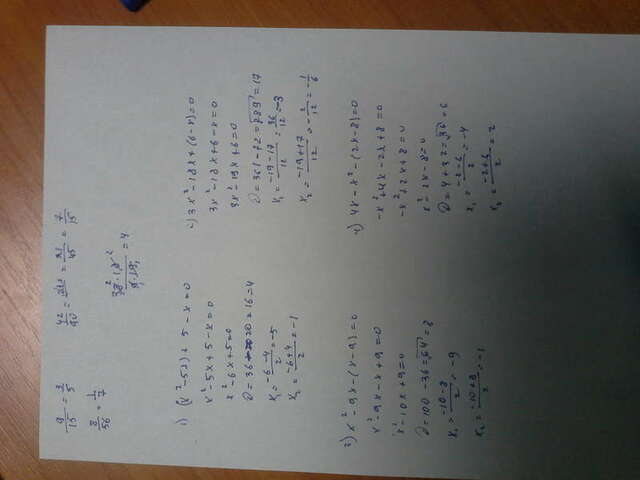 9/15 = 3/5
8/56 = 1/7
42/90 = 21/45 = 7/15
= 4
1) (x² - 5x) + 5 - x = 0
x² - 5x + 5 - x = 0
x² - 6x + 5 = 0
D = 36 - 20 = 16 = 4
x₁ = -6-4/2 = -5
x₂ = -6+4/2 = -1
2) x² - 9x - (x - 9) = 0
x² - 9x - x + 9 = 0
x² - 10x + 9 = 0
D = 100 - 36 = √64 = 8
x₁ = -10-8/2 = -9
x₂ = -10+8/2 = -1
3x² - 18x + (6 - x) = 0
3x² - 18x + 6 - x = 0
3x² - 19x + 6 = 0
D = 361 - 72 = √289 = 17
x₁ = -19-17/12 = 36/12 = -3
x₂ = -19+17/12 = -2/12 = -1/6
4) 4x - x² - (2x - 8) = 0
-x² + 4x - 2x + 8 = 0
-x² + 2x + 8 = 0
x² - 2x - 8 = 0
D = 4 + 32 = √36 = 6
x₁ = -2-6/2 = -4
x₂ = -2+6/2 = 2